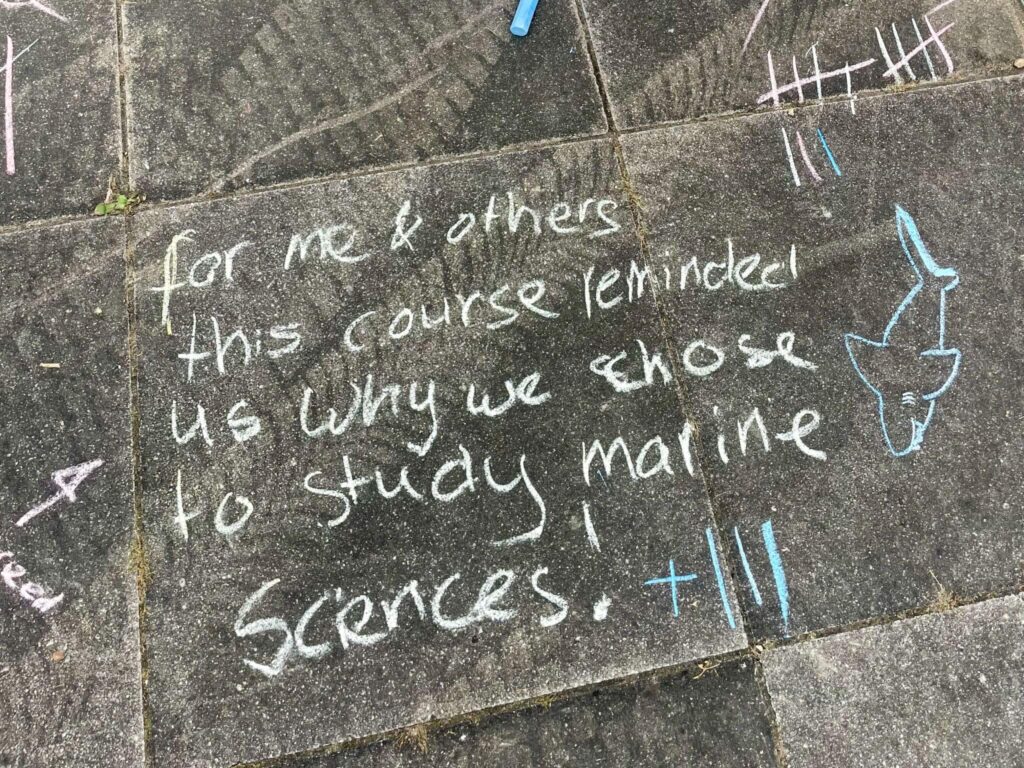 for me & others
this course reminded
us why we chose
to study marine
Sciences! + |||